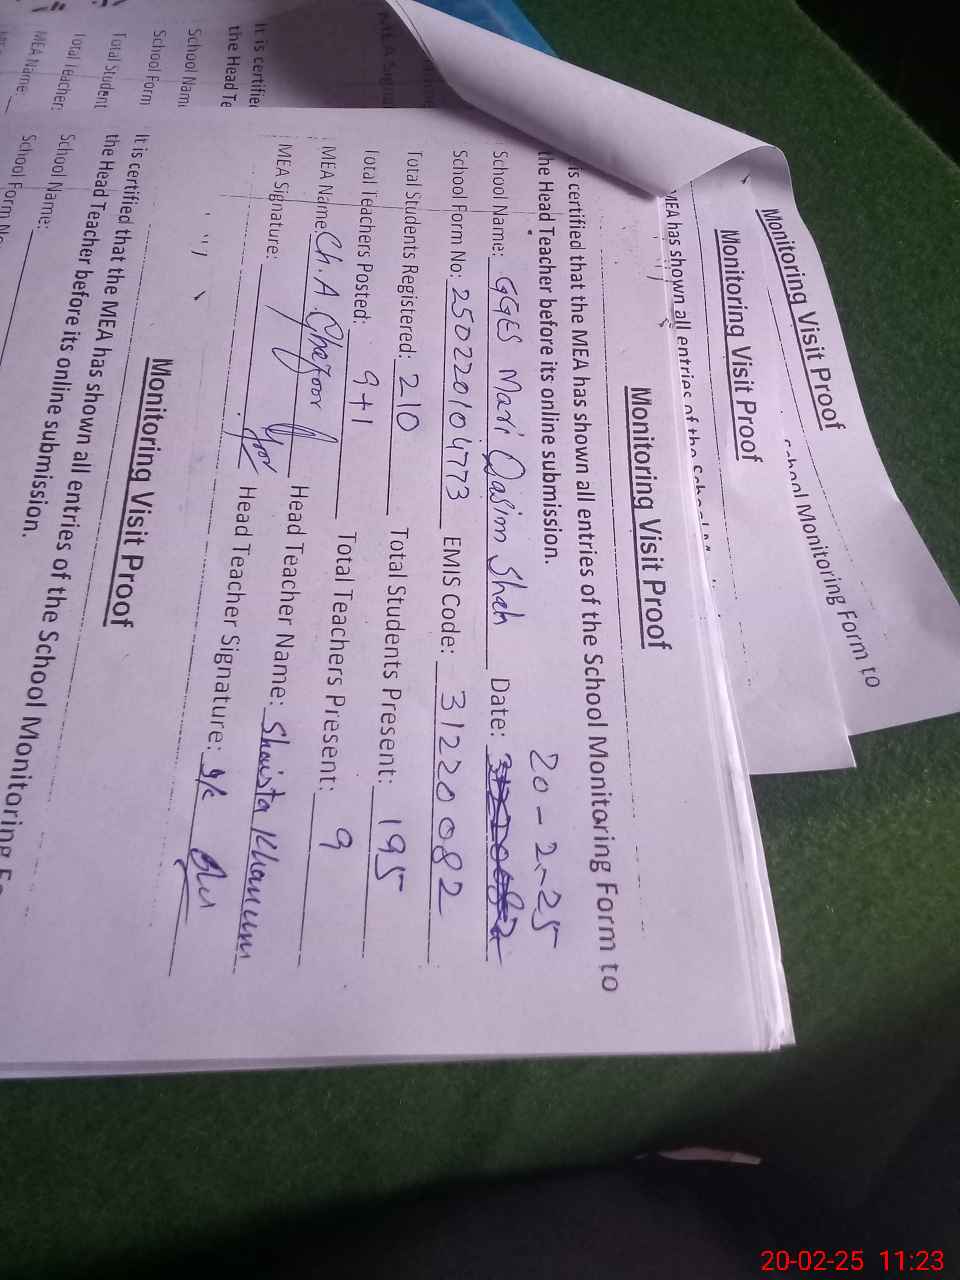 Monitoring Visit Proof
School Monitoring Form to
Monitoring Visit Proof
MEA has shown all entries of the
Monitoring Visit Proof
is certified that the MEA has shown all entries of the School Monitoring Form to
the Head Teacher before its online submission.
20-2-25
School Name: GGES Mari Qasim Shah Date:
School Form No: 250220104773 EMIS Code: 31220082
Total Students Registered: 210 Total Students Present: 195
Total Teachers Posted: 9+1 Total Teachers Present: 9
MEA Name: Ch. A Ghafoor Head Teacher Name: Shaista Khanum
MEA Signature: Head Teacher Signature:
Monitoring Visit Proof
It is certified that the MEA has shown all entries of the School Monitoring
the Head Teacher before its online submission.
School Name:
School Form No
It is certified
the Head Te
School Nam
School Form
Total Student
Total Teacher
MEA Name:
20-02-25 11:23